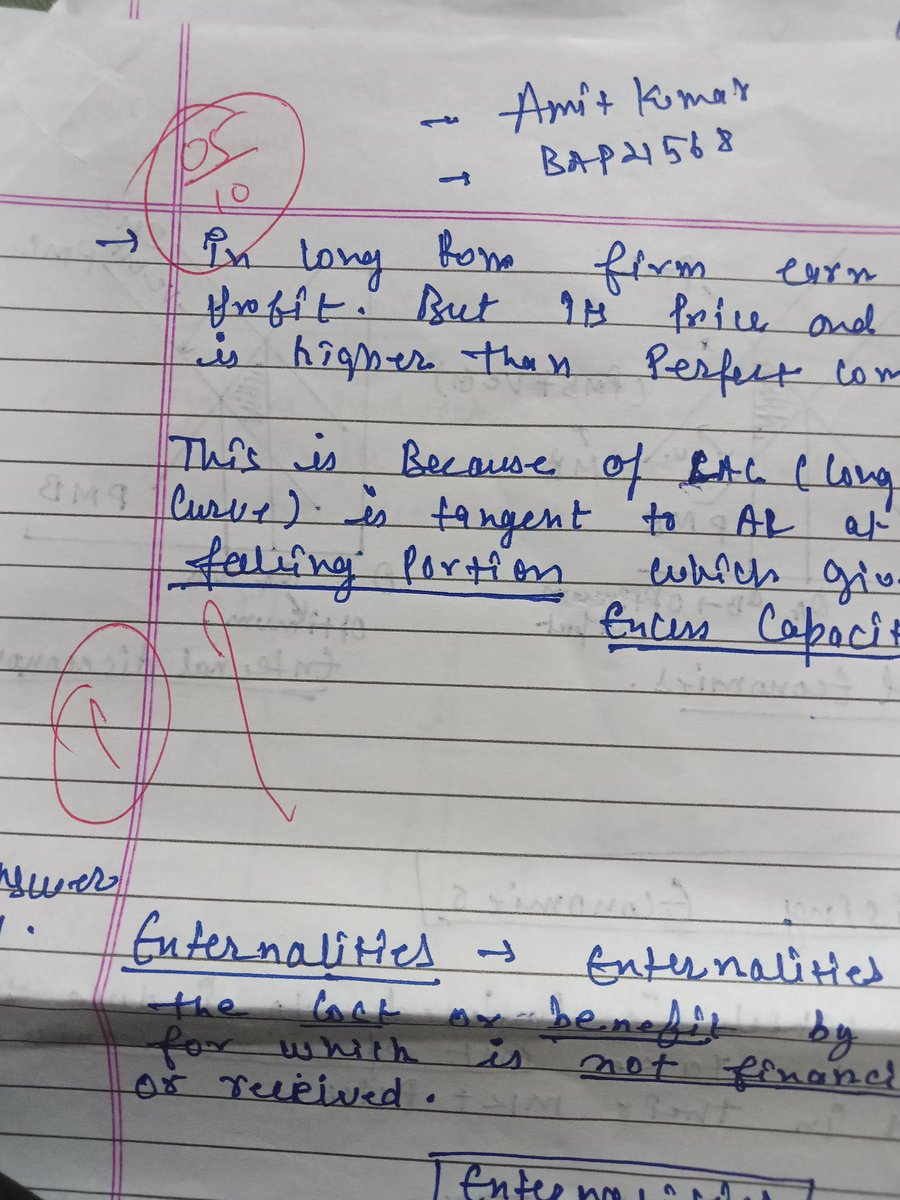 - Amit Kumar
→ BAP21568
05/10
→ In long Rom firm earn
Profit. But its Price and
is higher than Perfect com
This is Because of LAC (long
Curve) is tangent to AR at
falling Portion which giv
Excess Capacit
1
nswer
Externalities → Externalities
the cost or benefit by
for which is not financi
or received.
Externalities